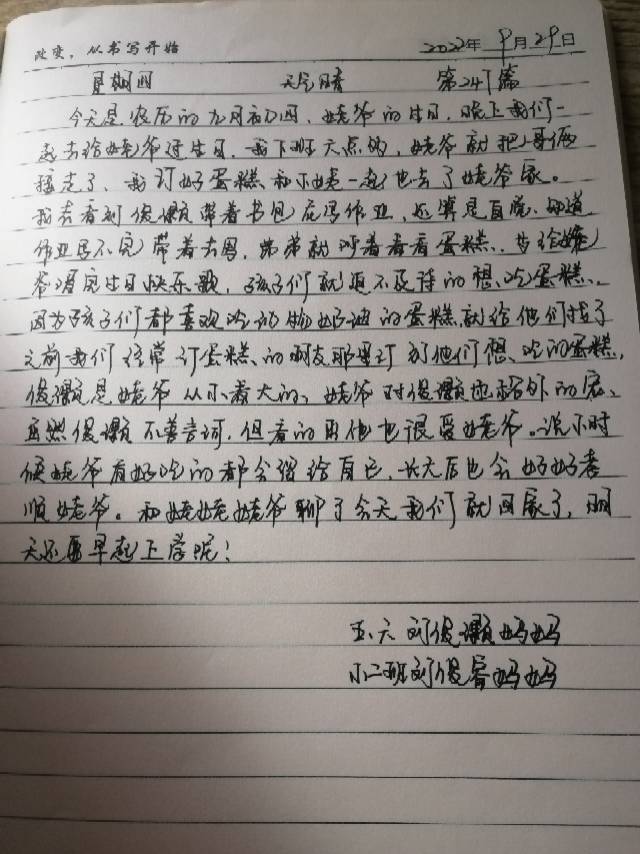 改变，从书写开始 2022年 9月29日
星期四 天气晴 第247篇
今天是农历的九月初四，姥爷的生日，晚上我们一
起去给姥爷过生日，我下班六点的，姥爷就把哥俩
接走了，我订好蛋糕和小姨一起也去了姥爷家。
我去看到俊灏带着书包在写作业，还算是自觉，知道
作业写不完带着去写，弟弟就呼着看看蛋糕，等给姥
爷唱完生日快乐歌，孩子们就迫不及待的想吃蛋糕，
因为孩子们都喜欢吃动物奶油的蛋糕，就给他们找了
之前我们经常订蛋糕的朋友那里订了他们想吃的蛋糕，
俊灏是姥爷从小看大的，姥爷对俊灏也格外的宠，
虽然俊灏不善言词，但看的出他也很爱姥爷。说小时
候姥爷有好吃的都会留给自己，长大后也会好好孝
顺姥爷。和姥姥姥爷聊了会天我们就回家了，明
天还要早起上学呢！
五.六 刘俊灏妈妈
小二班刘俊睿妈妈